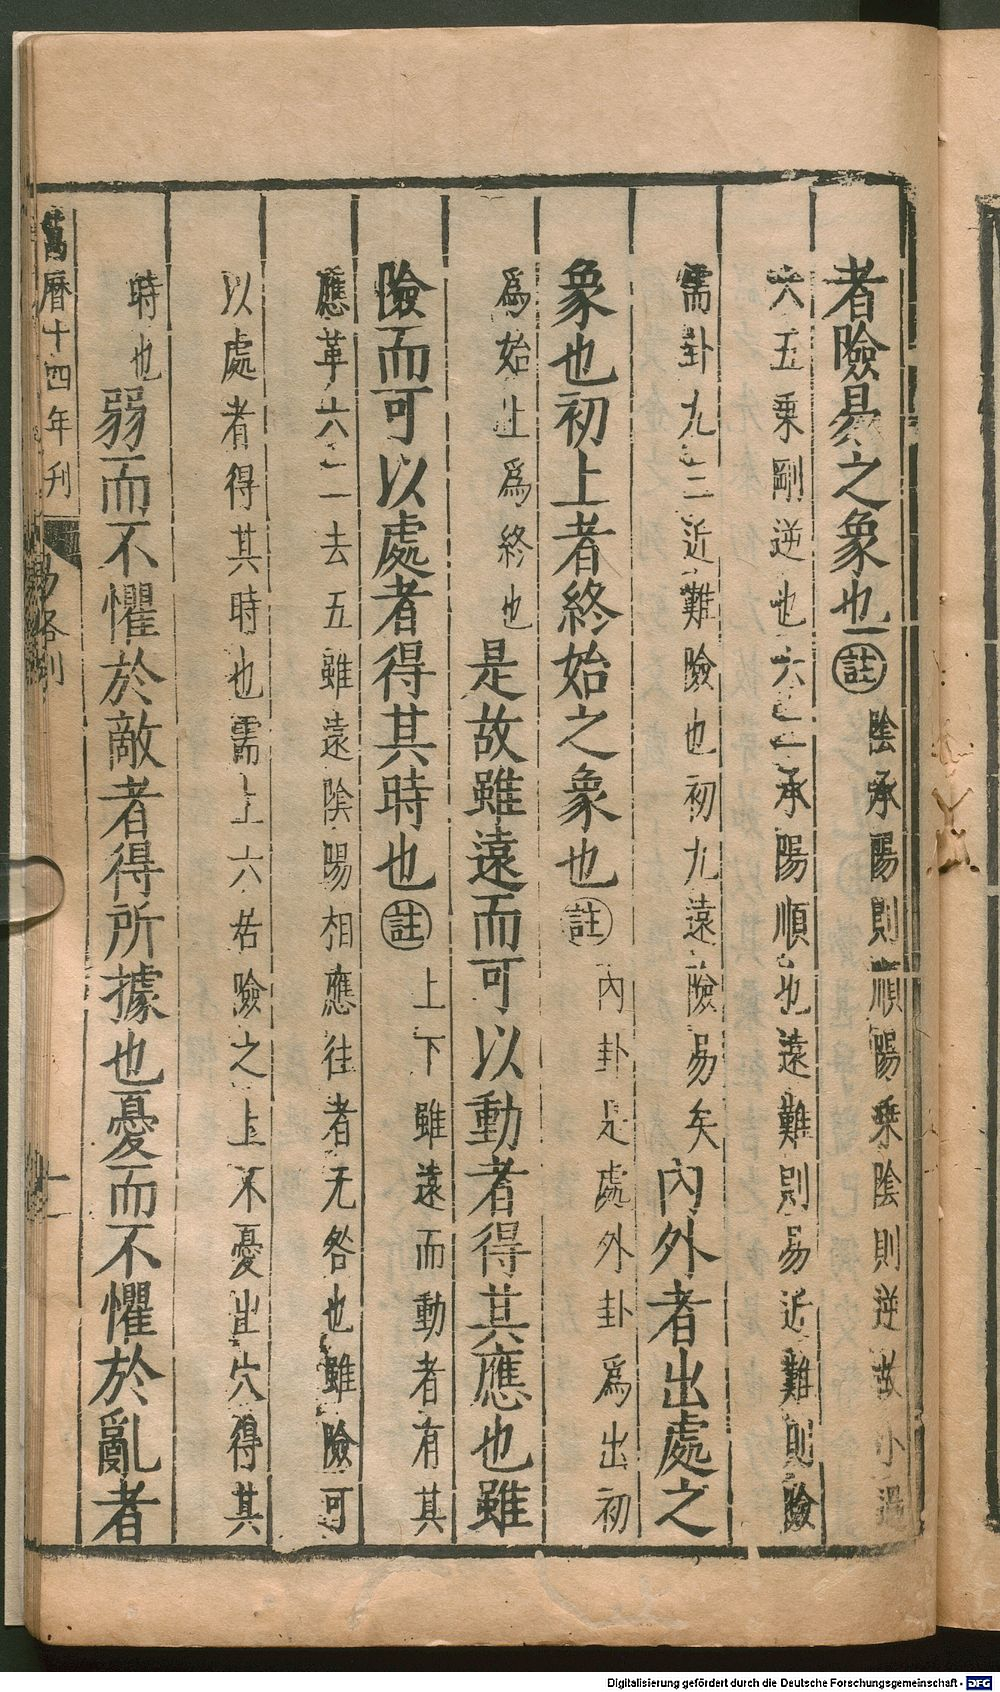 者險易之象也註陰承陽則順陽乘陰則逆故小過
六五乘剛逆也六二承陽順也遠難則易近難則險
需卦九三近難險也初九遠險易矣內外者出處之
象也初上者終始之象也註內卦是處外卦爲出初
爲始上爲終也是故雖遠而可以動者得其應也雖
險而可以處者得其時也註上下雖遠而動者有其
應革六二去五雖遠陰陽相應往者无咎也雖險可
以處者得其時也需上六居險之上不憂出穴得其
時也弱而不懼於敵者得所據也憂而不懼於亂者
萬曆十四年刊 易略例 十一
Digitalisierung gefördert durch die Deutsche Forschungsgemeinschaft - DFG